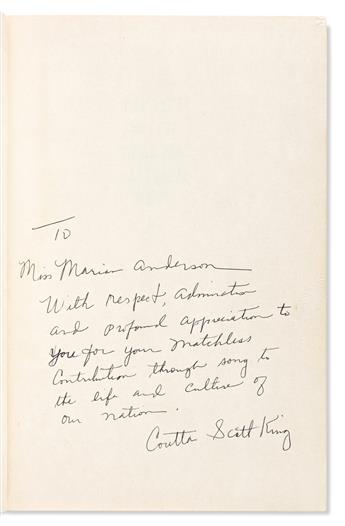 To
Miss Marian Anderson
With respect, admiration
and profound appreciation to
you for your matchless
Contribution through song to
the life and culture of
our nation.
Coretta Scott King